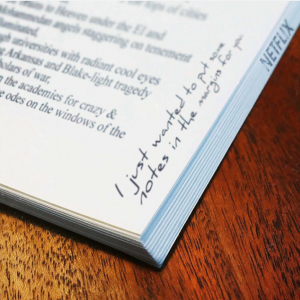 tops of cities
to Heaven under the El and
ammedan angels staggering on tenement
lluminated.
gh universities with radiant cool eyes
Arkansas and Blake-light tragedy
holars of war.
the academies for crazy &
e odes on the windows of the
I just wanted to put some
notes in the margins for you.
NETFLIX